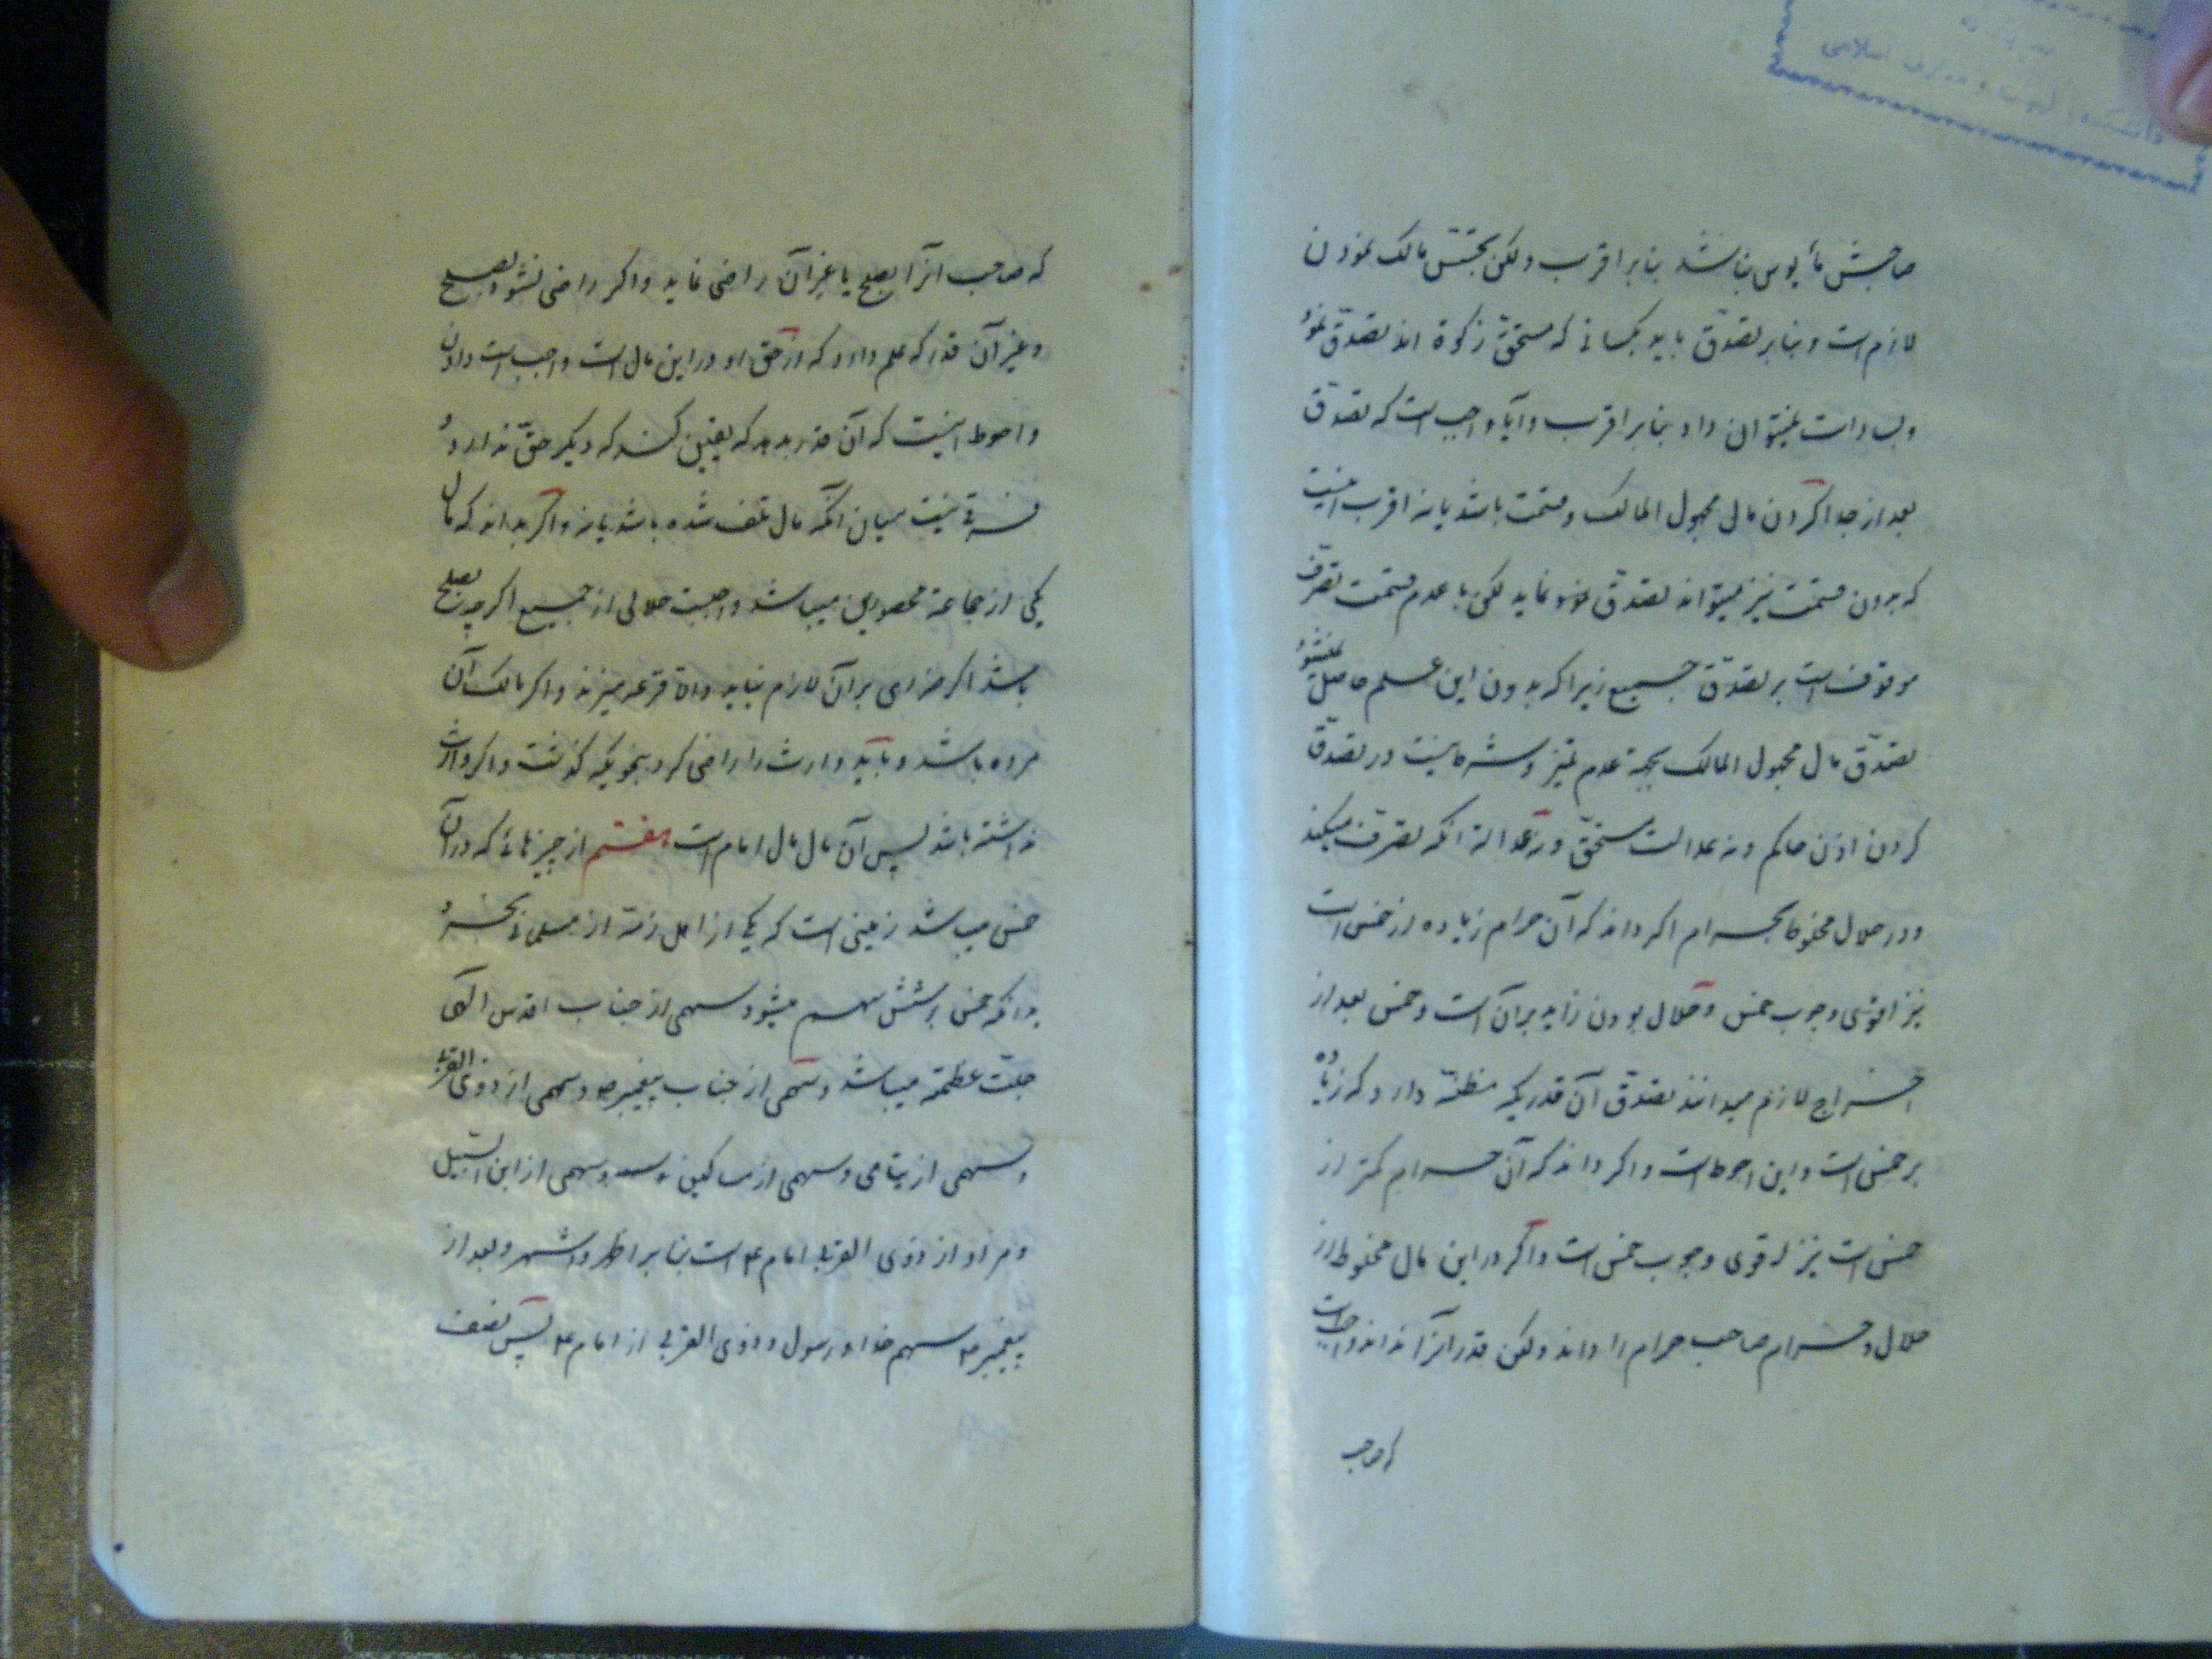 صاحبش مأیوس نباشد بنابر اقرب ولکن تجسّس مالک نمودن
لازم است و بنابر تصدّق باید بکسانی که مستحقّ زکوة اند تصدّق نمود
وبسادات نمیتوان داد بنابر اقرب وآیا واجب است که تصدّق
بعد از جدا کردن مال مجهول المالک وقسمت باشد یا نه اقرب اینست
که بدون قسمت نیز میتواند تصدّق نماید لکن با عدم قسمت تصرّف
موقوف است بر تصدّق جمیع زیرا که بدون این علم حاصل نمیشود
تصدّق مال مجهول المالک بجهة عدم تمیز وشرط نیست در تصدّق
کردن اذن حاکم ونه عدالت مستحقّ ونه عدالة آنکه تصرّف میکند
ودر حلال مخلوط بحرام اگر داند که آن حرام زیاده از خمس است
نیز اقوی وجوب خمس وحلال بودن زاید بر آن است وخمس بعد از
اخراج لازم میدانند تصدّق آن قدریکه مظنّه دارد که زیاده
بر خمس است واین احوط است واگر داند که آن حرام کمتر از
خمس است نیز اقوی وجوب خمس است واگر در این مال مخلوط از
حلال وحرام صاحب حرام را داند ولکن قدر آنرا نداند واجبست
که صاحب
که صاحب آنرا بصلح یا غیر آن راضی نماید واگر راضی نشود بصلح
وغیر آن قدر که علم دارد که از حقّ او در این مال است واجب است دادن
واحوط اینست که آن قدر بدهد که یقین کند که دیگر حقّی ندارد و
فرقی نیست میان آنکه مال تلف شده باشد یا نه واگر بداند که مال
یکی از جماعة محصورین میباشد واجبست حلالی از جمیع اگرچه بصلح
باشد اگر ضرری بر آن لازم نیاید والّا قرعه میزند واگر مالک آن
مرده باشد باید وارث را راضی کرد بنحویکه گذشت واگر وارث
نداشته باشد پس آن مال مال امام است هفتم از چیزهائی که در آن
خمس میباشد زمینی است که یکی از اهل ذمّة از مسلمانی بخرد
بدانکه خمس بر شش سهم میشود سهمی از جناب اقدس الهی
جلّت عظمته میباشد وسهمی از جناب پیغمبر ص وسهمی از ذوی القربی
وسهمی از یتامی وسهمی از مساکین وسهمی از ابن السّبیل
ومراد از ذوی القربی امام ع است بنابر اظهر واشهر وبعد از
پیغمبر ص سهم خدا ورسول وذوی القربی از امام ع پس نصف